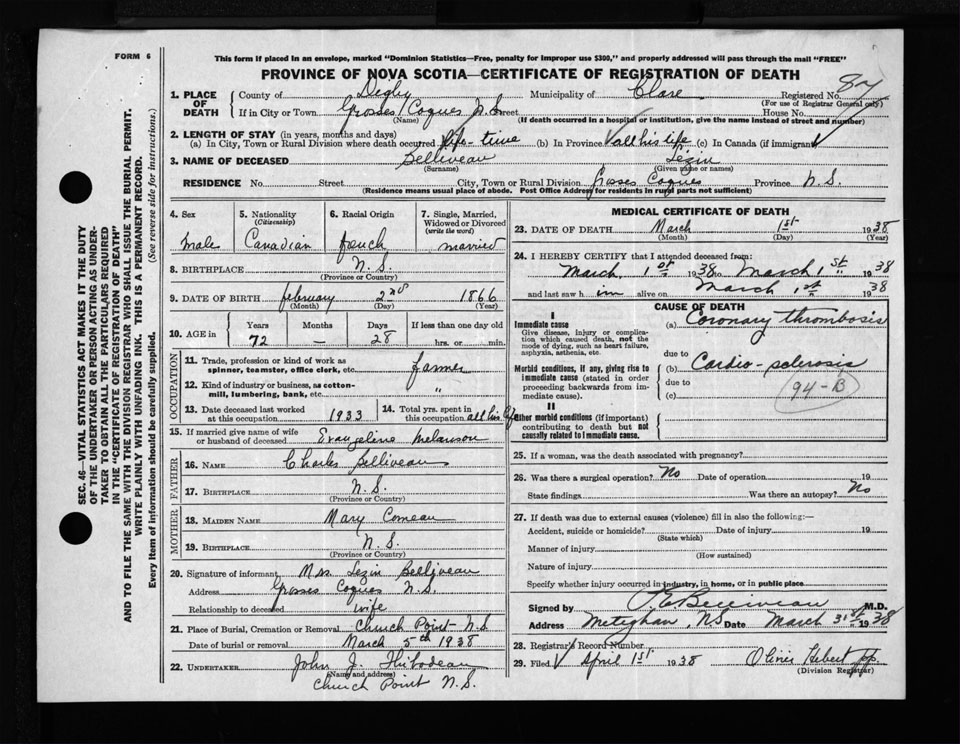 FORM 6
This form if placed in an envelope, marked "Dominion Statistics—Free, penalty for improper use $300," and properly addressed will pass through the mail "FREE"
PROVINCE OF NOVA SCOTIA—CERTIFICATE OF REGISTRATION OF DEATH
87
1. PLACE OF DEATH County of Digby Municipality of Clare Registered No.
(For use of Registrar General only)
If in City or Town Grosses Coques N.S. Street House No.
(Name) (If death occurred in a hospital or institution, give the name instead of street and number)
2. LENGTH OF STAY (in years, months and days)
(a) In City, Town or Rural Division where death occurred life-time (b) In Province all his life (c) In Canada (if immigrant)
3. NAME OF DECEASED Belliveau Lezin
(Given name or names)
RESIDENCE No. Street City, Town or Rural Division Grosses Coques Province N.S.
(Residence means usual place of abode. Post Office Address for residents in rural parts not sufficient)
SEC. 46—VITAL STATISTICS ACT MAKES IT THE DUTY
OF THE UNDERTAKER OR PERSON ACTING AS UNDER-
TAKER TO OBTAIN ALL THE PARTICULARS REQUIRED
IN THE "CERTIFICATE OF REGISTRATION OF DEATH"
AND TO FILE THE SAME WITH THE DIVISION REGISTRAR WHO SHALL ISSUE THE BURIAL PERMIT.
WRITE PLAINLY WITH UNFADING INK. THIS IS A PERMANENT RECORD.
Every item of information should be carefully supplied. (See reverse side for instructions.)
4. Sex
male
5. Nationality
(Citizenship)
Canadian
6. Racial Origin
french
7. Single, Married,
Widowed or Divorced
(write the word)
married
8. BIRTHPLACE N.S.
(Province or Country)
9. DATE OF BIRTH february 2nd 1866
(Month) (Day) (Year)
10. AGE in Years Months Days If less than one day old
72 — 28 hrs. or min.
OCCUPATION
11. Trade, profession or kind of work as
spinner, teamster, office clerk, etc. farmer
12. Kind of industry or business, as cotton-
mill, lumbering, bank, etc. "
13. Date deceased last worked
at this occupation 1933
14. Total yrs. spent in
this occupation all his life
15. If married give name of wife
or husband of deceased Evangeline Melanson
FATHER
16. NAME Charles Belliveau
17. BIRTHPLACE N.S.
(Province or Country)
MOTHER
18. MAIDEN NAME Mary Comeau
19. BIRTHPLACE N.S.
(Province or Country)
20. Signature of informant Mrs Lezin Belliveau
Address Grosses Coques N.S.
Relationship to deceased wife
21. Place of Burial, Cremation or Removal Church Point N.S
Date of burial or removal March 5th 1938
22. UNDERTAKER John J. Thibodeau
(Name and address)
Church Point N.S.
MEDICAL CERTIFICATE OF DEATH
23. DATE OF DEATH March 1st 1938
(Month) (Day) (Year)
24. I HEREBY CERTIFY that I attended deceased from:
March 1st 1938 to March 1st 1938
and last saw him alive on March 1st 1938
CAUSE OF DEATH
I
Immediate cause
Give disease, injury or complica-
tion which caused death, not the
mode of dying, such as heart failure,
asphyxia, asthenia, etc.
(a) Coronary thrombosis
due to
Morbid conditions, if any, giving rise to
immediate cause (stated in order
proceeding backwards from im-
mediate cause).
(b) Cardio-sclerosis
due to
94-B
(c)
II
Other morbid conditions (if important)
contributing to death but not
causally related to immediate cause.
25. If a woman, was the death associated with pregnancy?
26. Was there a surgical operation? No Date of operation 19
State findings Was there an autopsy? No
27. If death was due to external causes (violence) fill in also the following:—
Accident, suicide or homicide? Date of injury 19
(State which)
Manner of injury
(How sustained)
Nature of injury
Specify whether injury occurred in industry, in home, or in public place
Signed by Belliveau M.D.
Address Meteghan, NS Date March 31st 1938
28. Registrar's Record Number
29. Filed April 1st 1938 Oliver Hebert
(Division Registrar)